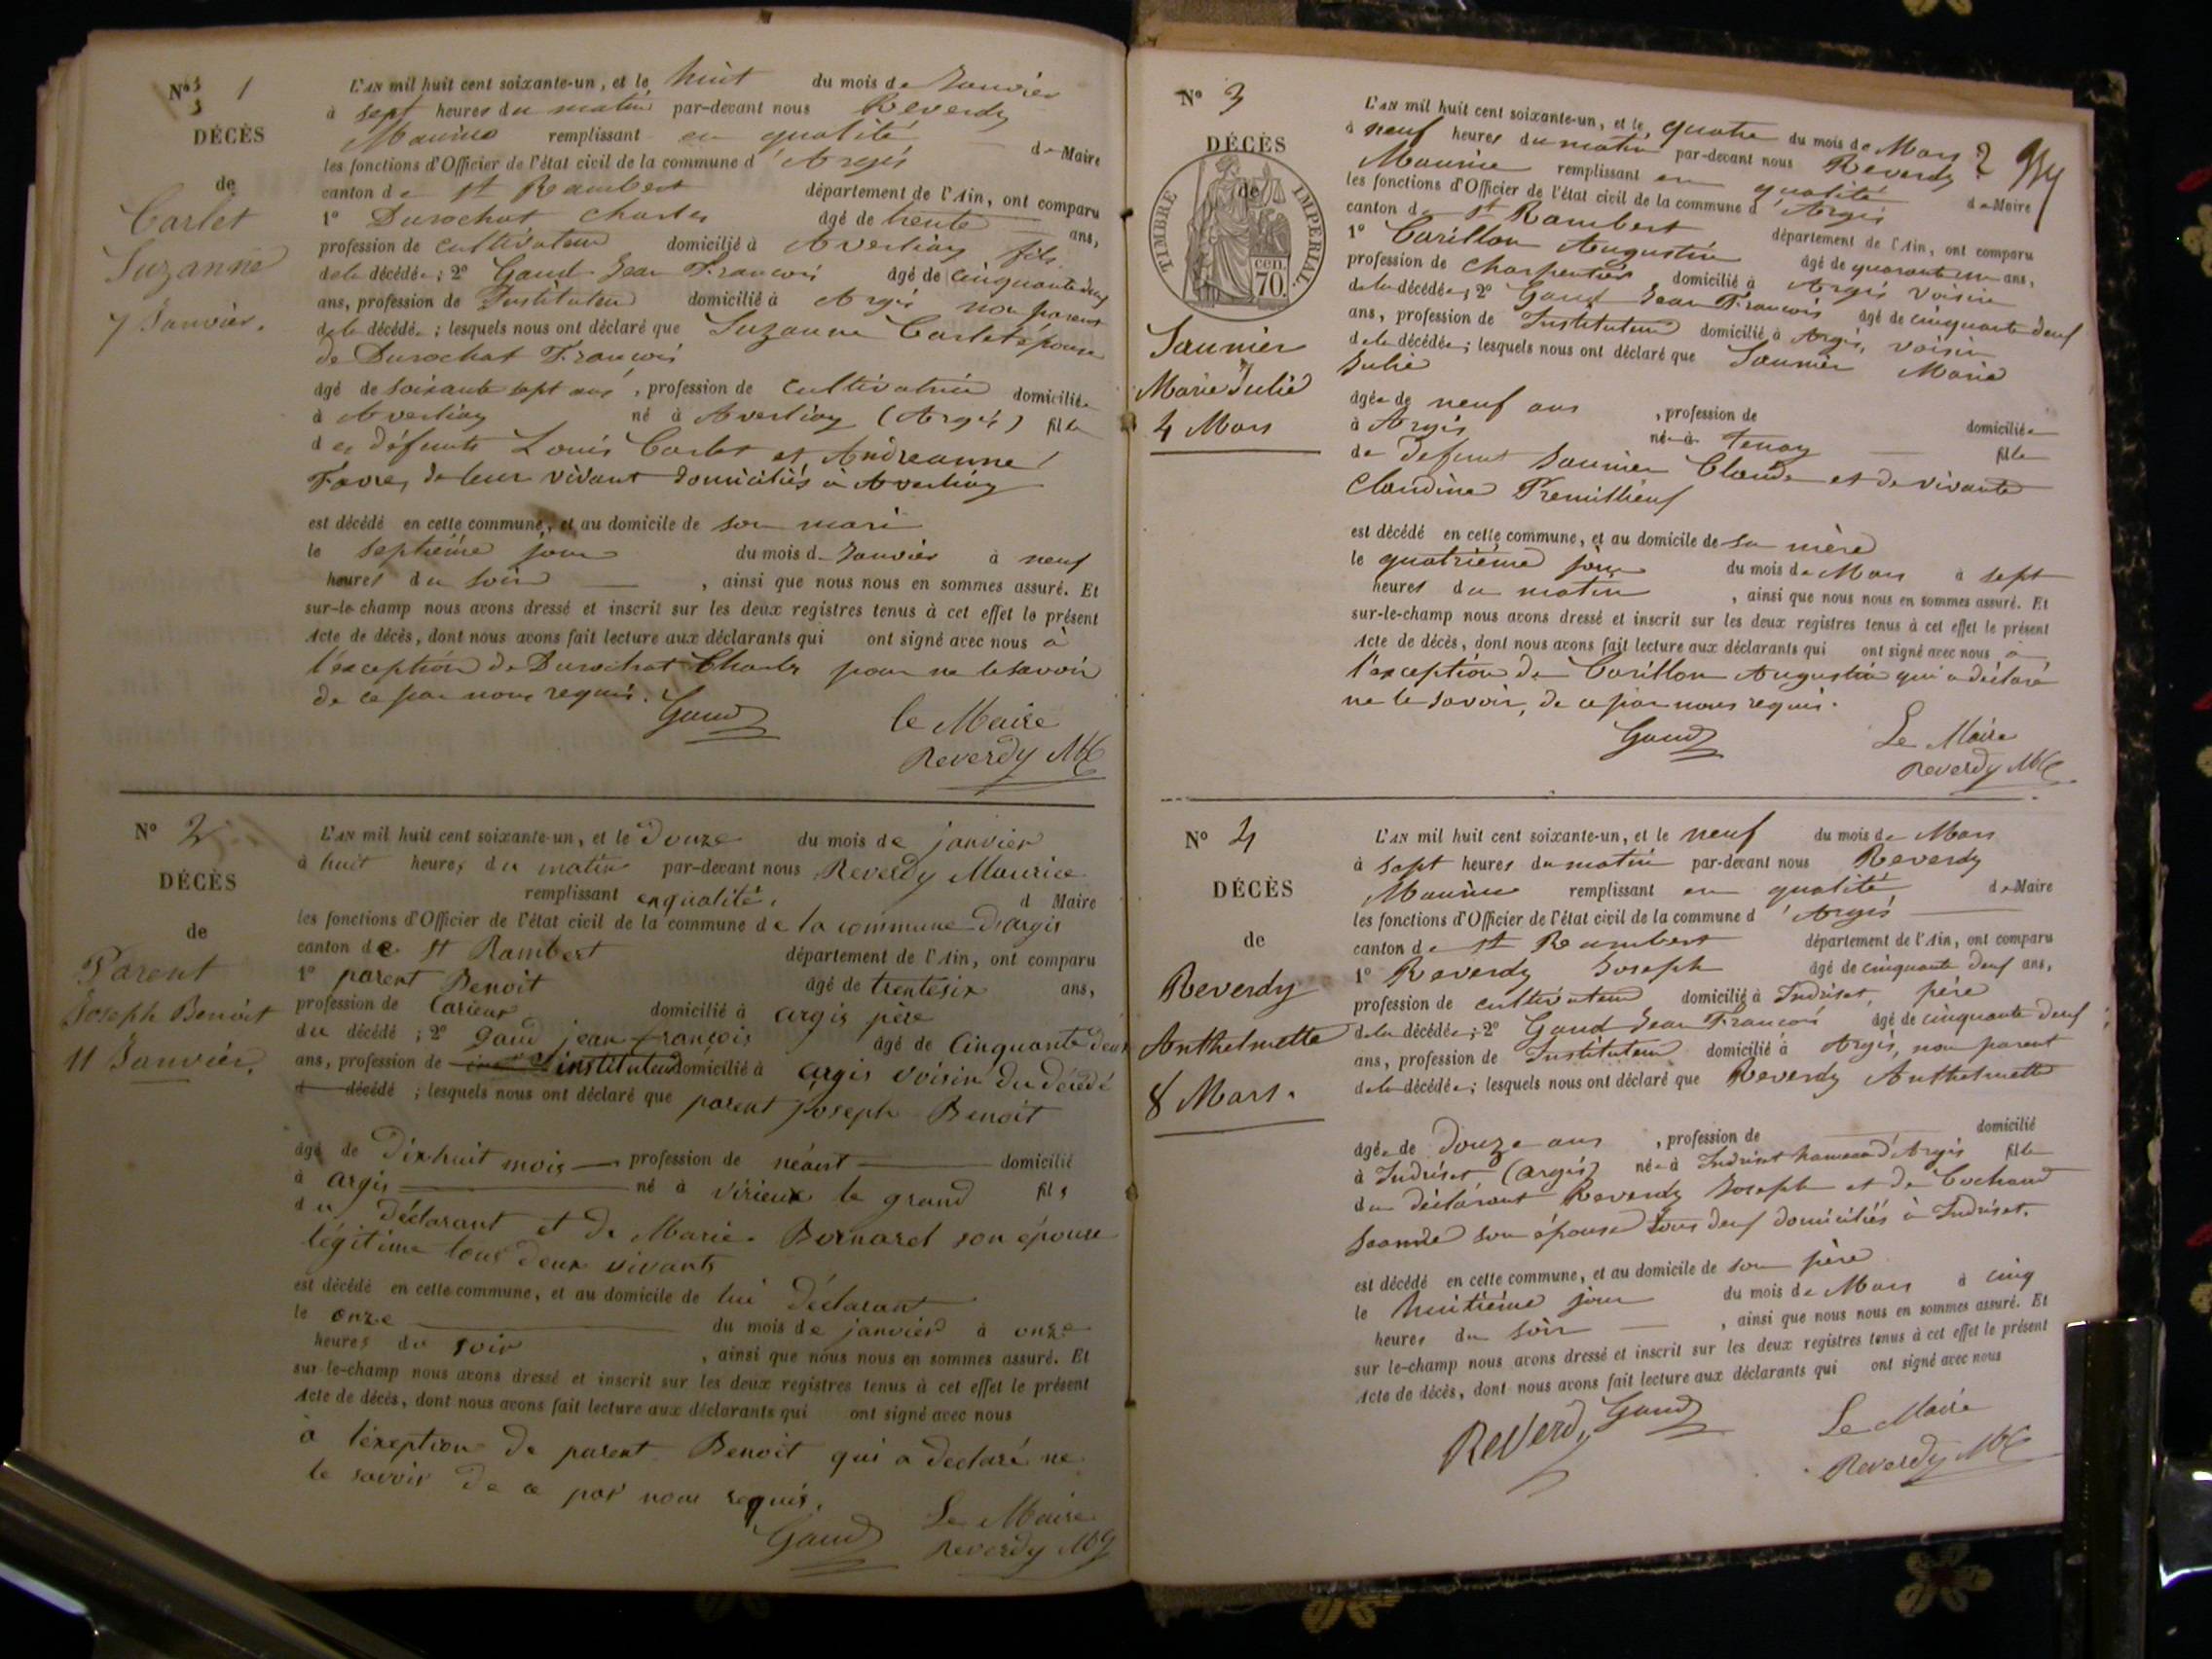 N° 1
DÉCÈS
de
Carlet
Suzanne
7 Janvier.
L'AN mil huit cent soixante-un, et le huit du mois de Janvier
à sept heures du matin par-devant nous Reverdy
Maurice remplissant en qualité de Maire
les fonctions d'Officier de l'état civil de la commune d'Argis
canton de St Rambert département de l'Ain, ont comparu
1° Durochat Charles âgé de trente ans,
profession de cultivateur domicilié à Averliaz fils
de la décédée ; 2° Gaud Jean François âgé de cinquante deux
ans, profession de Instituteur domicilié à Argis non parent
de la décédée ; lesquels nous ont déclaré que Suzanne Carlet épouse
de Durochat François
âgé de soixante sept ans, profession de cultivatrice domiciliée
à Averliaz né à Averliaz (Argis) fille
des défunts Louis Carlet et Andréanne
Favre, de leur vivant domiciliés à Averliaz
est décédé en cette commune, et au domicile de son mari
le septième jour du mois de Janvier à neuf
heures du soir , ainsi que nous nous en sommes assuré. Et
sur-le-champ nous avons dressé et inscrit sur les deux registres tenus à cet effet le présent
Acte de décès, dont nous avons fait lecture aux déclarants qui ont signé avec nous à
l'exception de Durochat Charles pour ne le savoir
de ce par nous requis.
Gaud
le Maire
Reverdy
N° 2
DÉCÈS
de
Parent
Joseph Benoit
11 Janvier.
L'AN mil huit cent soixante-un, et le Douze du mois de janvier
à huit heures du matin par-devant nous Reverdy Maurice
remplissant en qualité, d Maire
les fonctions d'Officier de l'état civil de la commune de la commune d'argis
canton de St Rambert département de l'Ain, ont comparu
1° parent Benoit âgé de trentesix ans,
profession de Carieur domicilié à argis père
du décédé ; 2° gaud jean françois âgé de Cinquante deux
ans, profession de instituteur domicilié à argis voisin du décédé
d décédé ; lesquels nous ont déclaré que parent joseph Benoit
âgé de Dixhuit mois profession de néant domicilié
à argis né à virieux le grand fils
du Déclarant et de Marie Bornarel son épouse
légitime tous Deux vivants
est décédé en cette commune, et au domicile de lui Déclarant
le onze du mois de janvier à onze
heures du soir , ainsi que nous nous en sommes assuré. Et
sur le-champ nous avons dressé et inscrit sur les deux registres tenus à cet effet le présent
Acte de décès, dont nous avons fait lecture aux déclarants qui ont signé avec nous
à l'exeption de parent Benoit qui a declaré ne
le savoir de ce par nous requis.
Gaud
Le Maire
Reverdy
N° 3
DÉCÈS
de
TIMBRE IMPERIAL.
70. cen.
Saunier
Marie Julie
4 Mars
L'AN mil huit cent soixante-un, et le quatre du mois de Mars
à neuf heures du matin par-devant nous Reverdy
Maurice remplissant en qualité de Maire
les fonctions d'Officier de l'état civil de la commune d'Argis
canton de St Rambert département de l'Ain, ont comparu
1° Carillon Augustin âgé de quarante un ans,
profession de Charpentier domicilié à Argis voisin
de la décédée ; 2° Gaud Jean François âgé de cinquante deux
ans, profession de Instituteur domicilié à Argis, voisin
de la décédée ; lesquels nous ont déclaré que Saunier Marie
Julie
âgée de neuf ans , profession de domiciliée
à Argis née à Tenay fille
de défunt Saunier Claude et de vivante
Claudine Premillieux
est décédé en cette commune, et au domicile de sa mère
le quatrième jour du mois de Mars à sept
heures du matin , ainsi que nous nous en sommes assuré. Et
sur-le-champ nous avons dressé et inscrit sur les deux registres tenus à cet effet le présent
Acte de décès, dont nous avons fait lecture aux déclarants qui ont signé avec nous à
l'exception de Carillon Augustin qui a déclaré
ne le savoir, de ce par nous requis.
Gaud
Le Maire
Reverdy
N° 4
DÉCÈS
de
Reverdy
Anthelmette
8 Mars.
L'AN mil huit cent soixante-un, et le neuf du mois de Mars
à sept heures du matin par-devant nous Reverdy
Maurice remplissant en qualité de Maire
les fonctions d'Officier de l'état civil de la commune d'Argis
canton de St Rambert département de l'Ain, ont comparu
1° Reverdy Joseph âgé de cinquante deux ans,
profession de cultivateur domicilié à Indriset, père
de la décédée ; 2° Gaud Jean François âgé de cinquante deux
ans, profession de Instituteur domicilié à Argis, non parent
de la décédée ; lesquels nous ont déclaré que Reverdy Anthelmette
âgée de Douze ans , profession de domicilié
à Indriset (argis) née à Indriset hameau d'Argis fille
du déclarant Reverdy Joseph et de Cochand
Jeanne son épouse tous deux domiciliés à Indriset.
est décédé en cette commune, et au domicile de son père
le huitième jour du mois de Mars à cinq
heures du soir , ainsi que nous nous en sommes assuré. Et
sur le-champ nous avons dressé et inscrit sur les deux registres tenus à cet effet le présent
Acte de décès, dont nous avons fait lecture aux déclarants qui ont signé avec nous
Reverdy Gaud
Le Maire
Reverdy